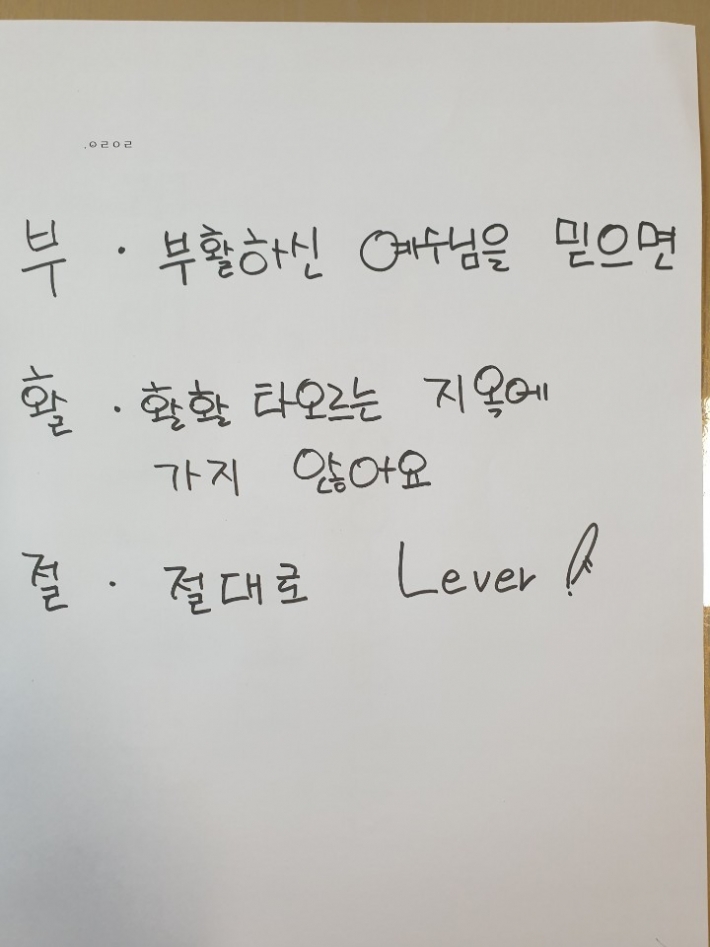 .ㅇㄹㅇㄹ
부 · 부활하신 예수님을 믿으면
활 · 활활 타오르는 지옥에
가지 않아요
절 · 절대로 Lever !